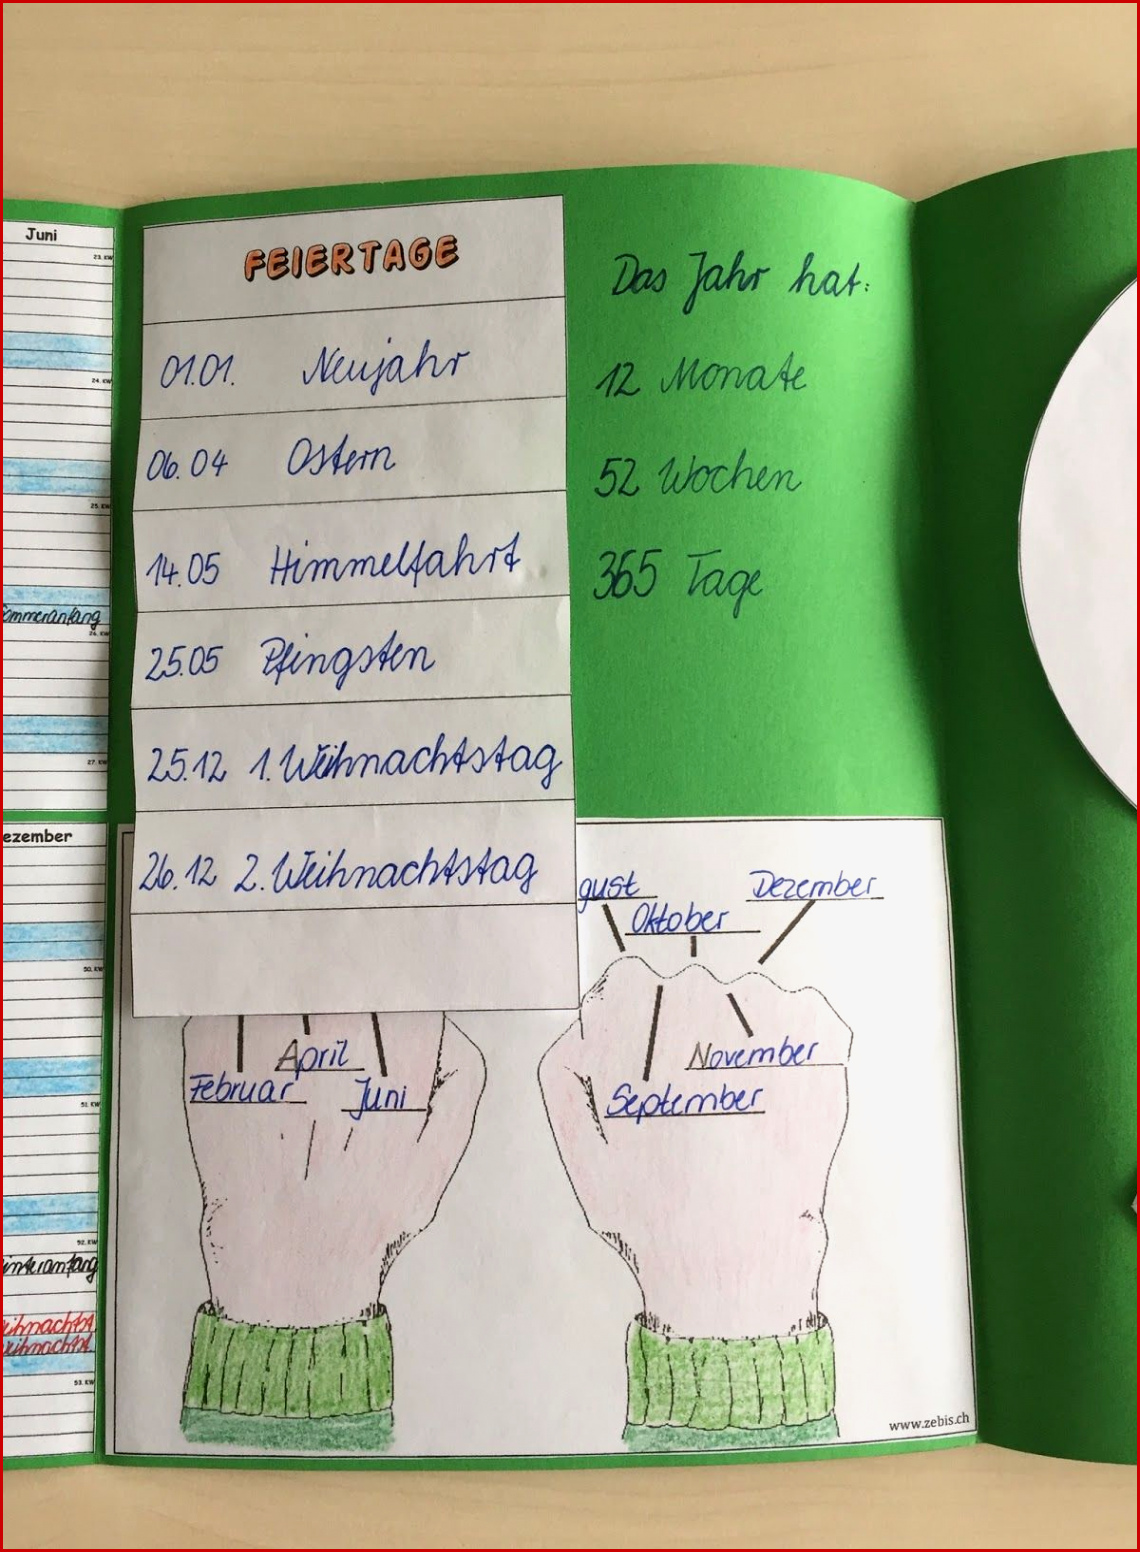 Juni
23. KW
24. KW
25. KW
ommeranfang
26. KW
27. KW
FEIERTAGE
01.01. Neujahr
06.04 Ostern
14.05 Himmelfahrt
25.05 Pfingsten
25.12 1. Weihnachtstag
26.12 2. Weihnachtstag
Das Jahr hat:
12 Monate
52 Wochen
365 Tage
ezember
50. KW
51. KW
52. KW
interanfang
eihnachtst
eihnachtst
53. KW
gust
Oktober
Dezember
April
Februar
Juni
November
September
www.zebis.ch